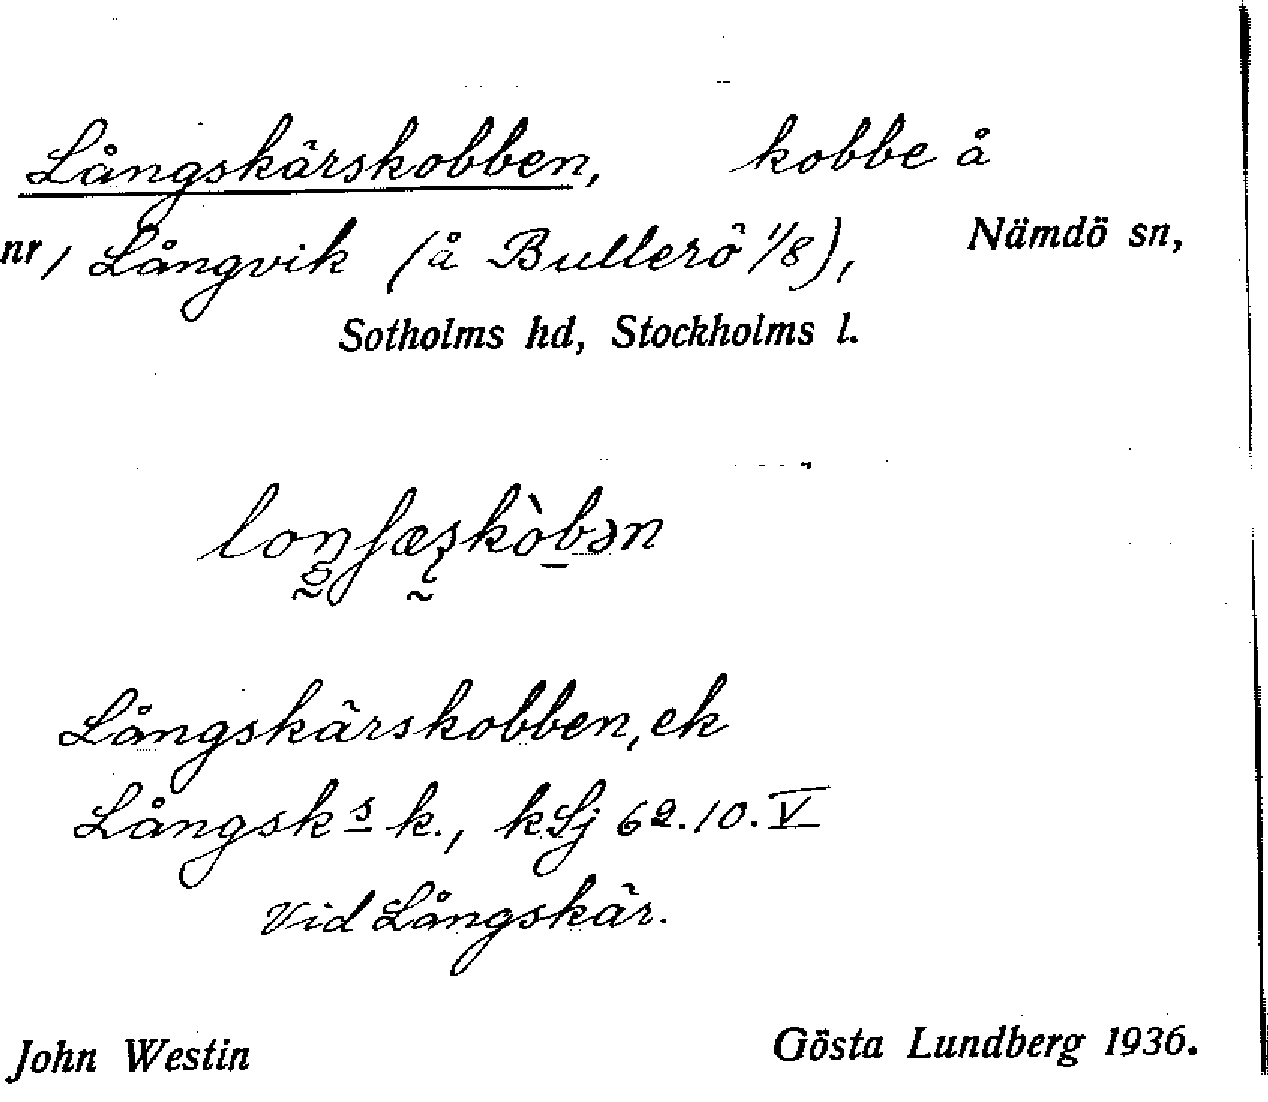 Långskärskobben, kobbe å
nr 1 Långvik (å Bullerö 1/8), Nämdö sn,
Sotholms hd, Stockholms l.
Långskärskobben, ek
Långsk s k., kSj 62.10.V
Vid Långskär.
John Westin Gösta Lundberg 1936.